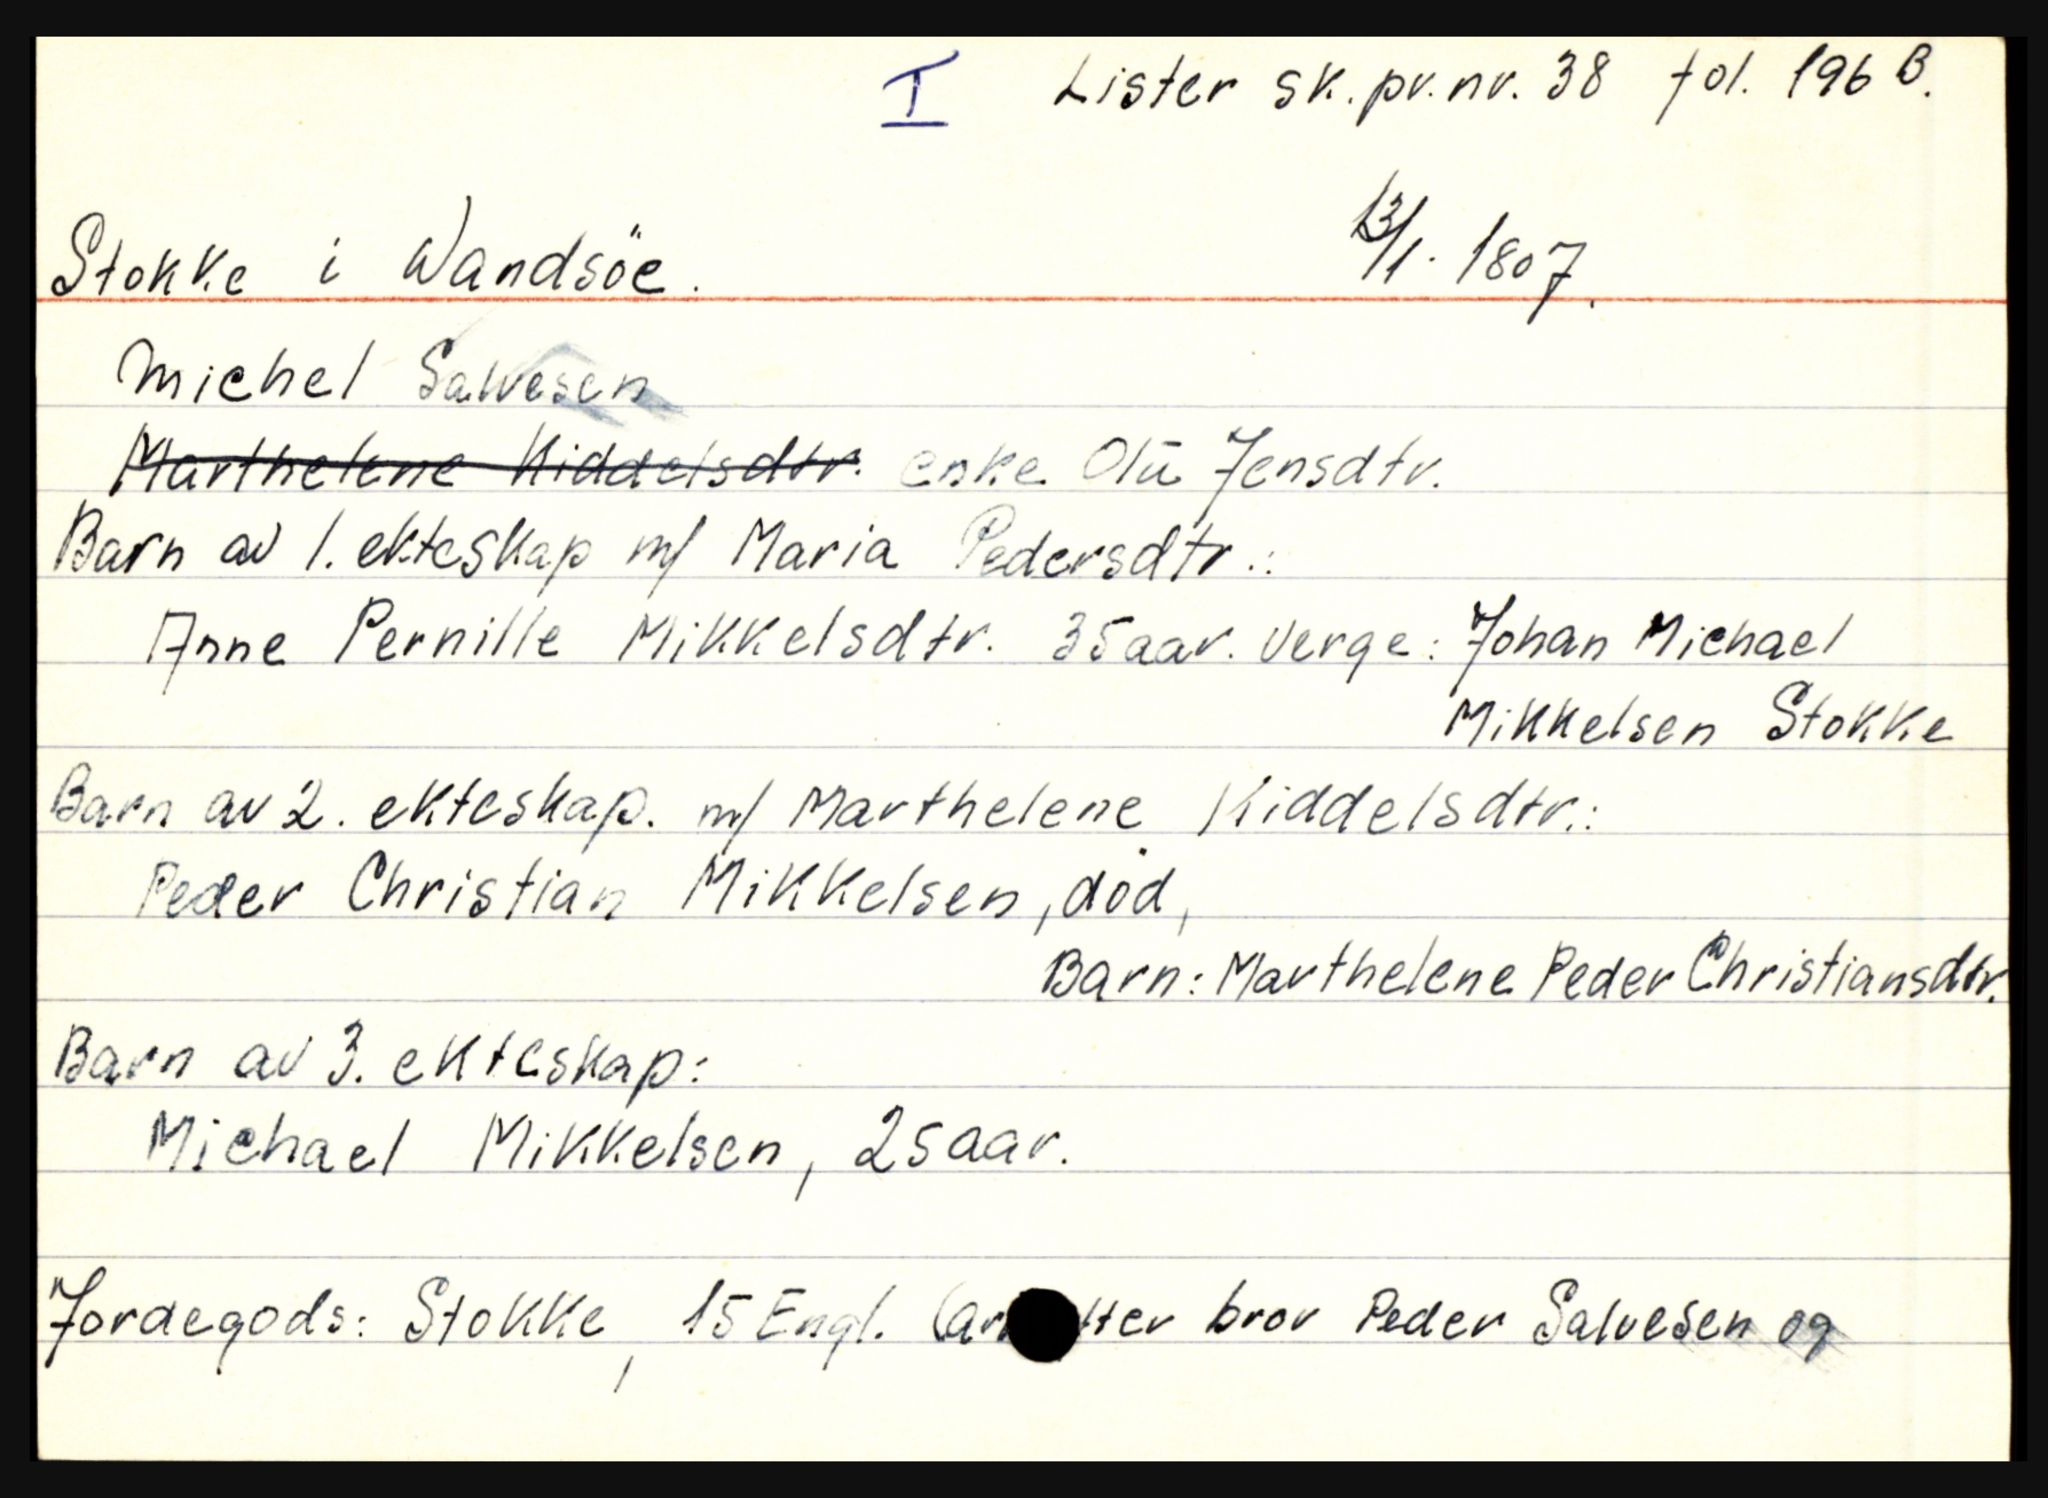 I Lister sk.pr.nr. 38 fol. 196 B.
Stokke i Wandsöe. 13/1. 1807.
Michel Salvesen
Marthelene Kiddelsdtr. enke Olu Jensdtr.
Barn av 1. ekteskap m/ Maria Pedersdtr.:
Anne Pernille Mikkelsdtr. 35aar. Verge: Johan Michael
Mikkelsen Stokke
Barn av 2. ekteskap. m/ Marthelene Kiddelsdtr.:
Peder Christian Mikkelsen, död,
Barn: Marthelene Peder Christiansdtr.
Barn av 3. ekteskap:
Michael Mikkelsen, 25aar.
Jordegods: Stokke, 15 Engl. bror Peder Salvesen og